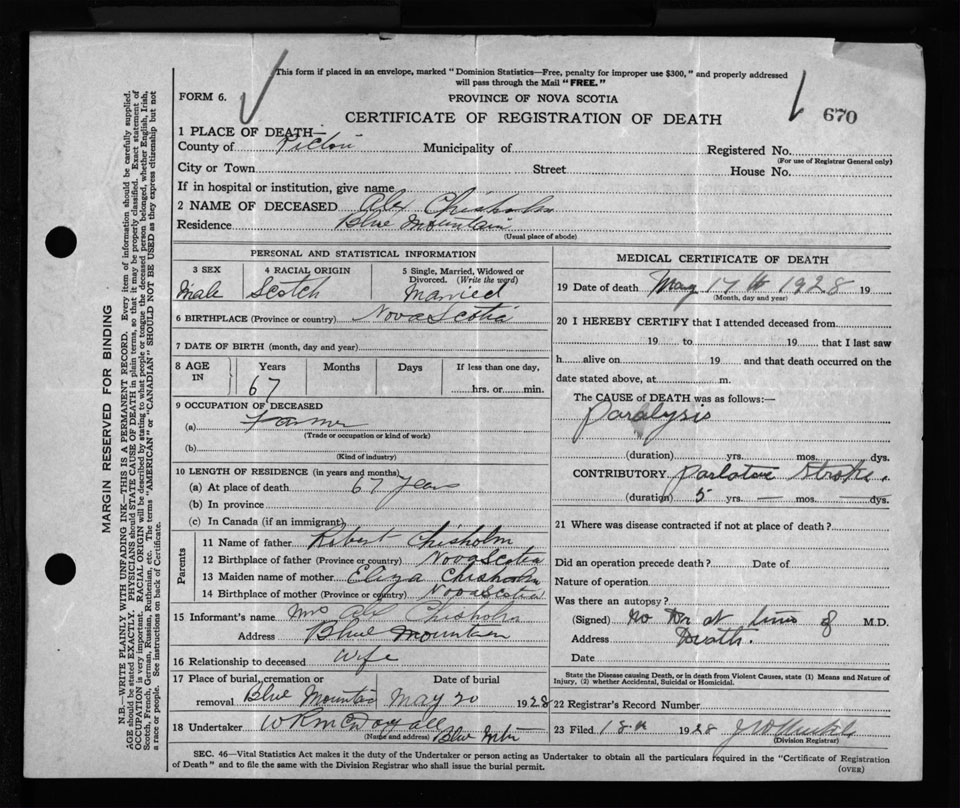 This form if placed in an envelope, marked "Dominion Statistics—Free, penalty for improper use $300," and properly addressed
will pass through the Mail "FREE."
FORM 6.
PROVINCE OF NOVA SCOTIA
CERTIFICATE OF REGISTRATION OF DEATH
670
1 PLACE OF DEATH—
County of Pictou Municipality of Registered No.
(For use of Registrar General only)
City or Town Street House No.
If in hospital or institution, give name
2 NAME OF DECEASED Alex Chisholm
Residence Blue Mountain
(Usual place of abode)
PERSONAL AND STATISTICAL INFORMATION
3 SEX 4 RACIAL ORIGIN 5 Single, Married, Widowed or
Divorced. (Write the word)
Male Scotch Married
6 BIRTHPLACE (Province or country) Nova Scotia
7 DATE OF BIRTH (month, day and year)
8 AGE IN Years Months Days If less than one day,
67 hrs. or min.
9 OCCUPATION OF DECEASED
(a) Farmer
(Trade or occupation or kind of work)
(b)
(Kind of industry)
10 LENGTH OF RESIDENCE (in years and months)
(a) At place of death 67 years
(b) In province
(c) In Canada (if an immigrant)
Parents
11 Name of father Robert Chisholm
12 Birthplace of father (Province or country) Nova Scotia
13 Maiden name of mother Eliza Chisholm
14 Birthplace of mother (Province or country) Nova Scotia
15 Informant's name Mrs Alex Chisholm
Address Blue Mountain
16 Relationship to deceased wife
17 Place of burial, cremation or Date of burial
removal Blue Mountain May 20 1928
18 Undertaker W R McDougall
(Name and address) Blue Mtn
MEDICAL CERTIFICATE OF DEATH
19 Date of death May 17th 1928 19
(Month, day and year)
20 I HEREBY CERTIFY that I attended deceased from
19 to 19 that I last saw
h alive on 19 and that death occurred on the
date stated above, at m.
The CAUSE of DEATH was as follows:—
Paralysis
(duration) yrs. mos. dys.
CONTRIBUTORY Stroke.
(duration) 5 yrs. — mos. — dys.
21 Where was disease contracted if not at place of death?
Did an operation precede death? Date of
Nature of operation
Was there an autopsy?
(Signed) No Dr at time of M.D.
Address Death.
Date
State the Disease causing Death, or in death from Violent Causes, state (1) Means and Nature of
Injury, (2) whether Accidental, Suicidal or Homicidal.
22 Registrar's Record Number
23 Filed 18th 1928
(Division Registrar)
SEC. 46—Vital Statistics Act makes it the duty of the Undertaker or person acting as Undertaker to obtain all the particulars required in the "Certificate of Registration
of Death" and to file the same with the Division Registrar who shall issue the burial permit.
(OVER)
MARGIN RESERVED FOR BINDING
N.B.—WRITE PLAINLY WITH UNFADING INK—THIS IS A PERMANENT RECORD. Every item of information should be carefully supplied.
AGE should be stated EXACTLY. PHYSICIANS should STATE CAUSE OF DEATH in plain terms, so that it may be properly classified. Exact statement of
OCCUPATION is very important. RACIAL ORIGIN will be described by stating to what people or tongue the deceased person belonged, whether English, Irish,
Scotch, French, German, Russian, Ruthenian, etc. The terms "AMERICAN" or "CANADIAN" SHOULD NOT BE USED as they express citizenship but not
a race or people. See instructions on back of Certificate.